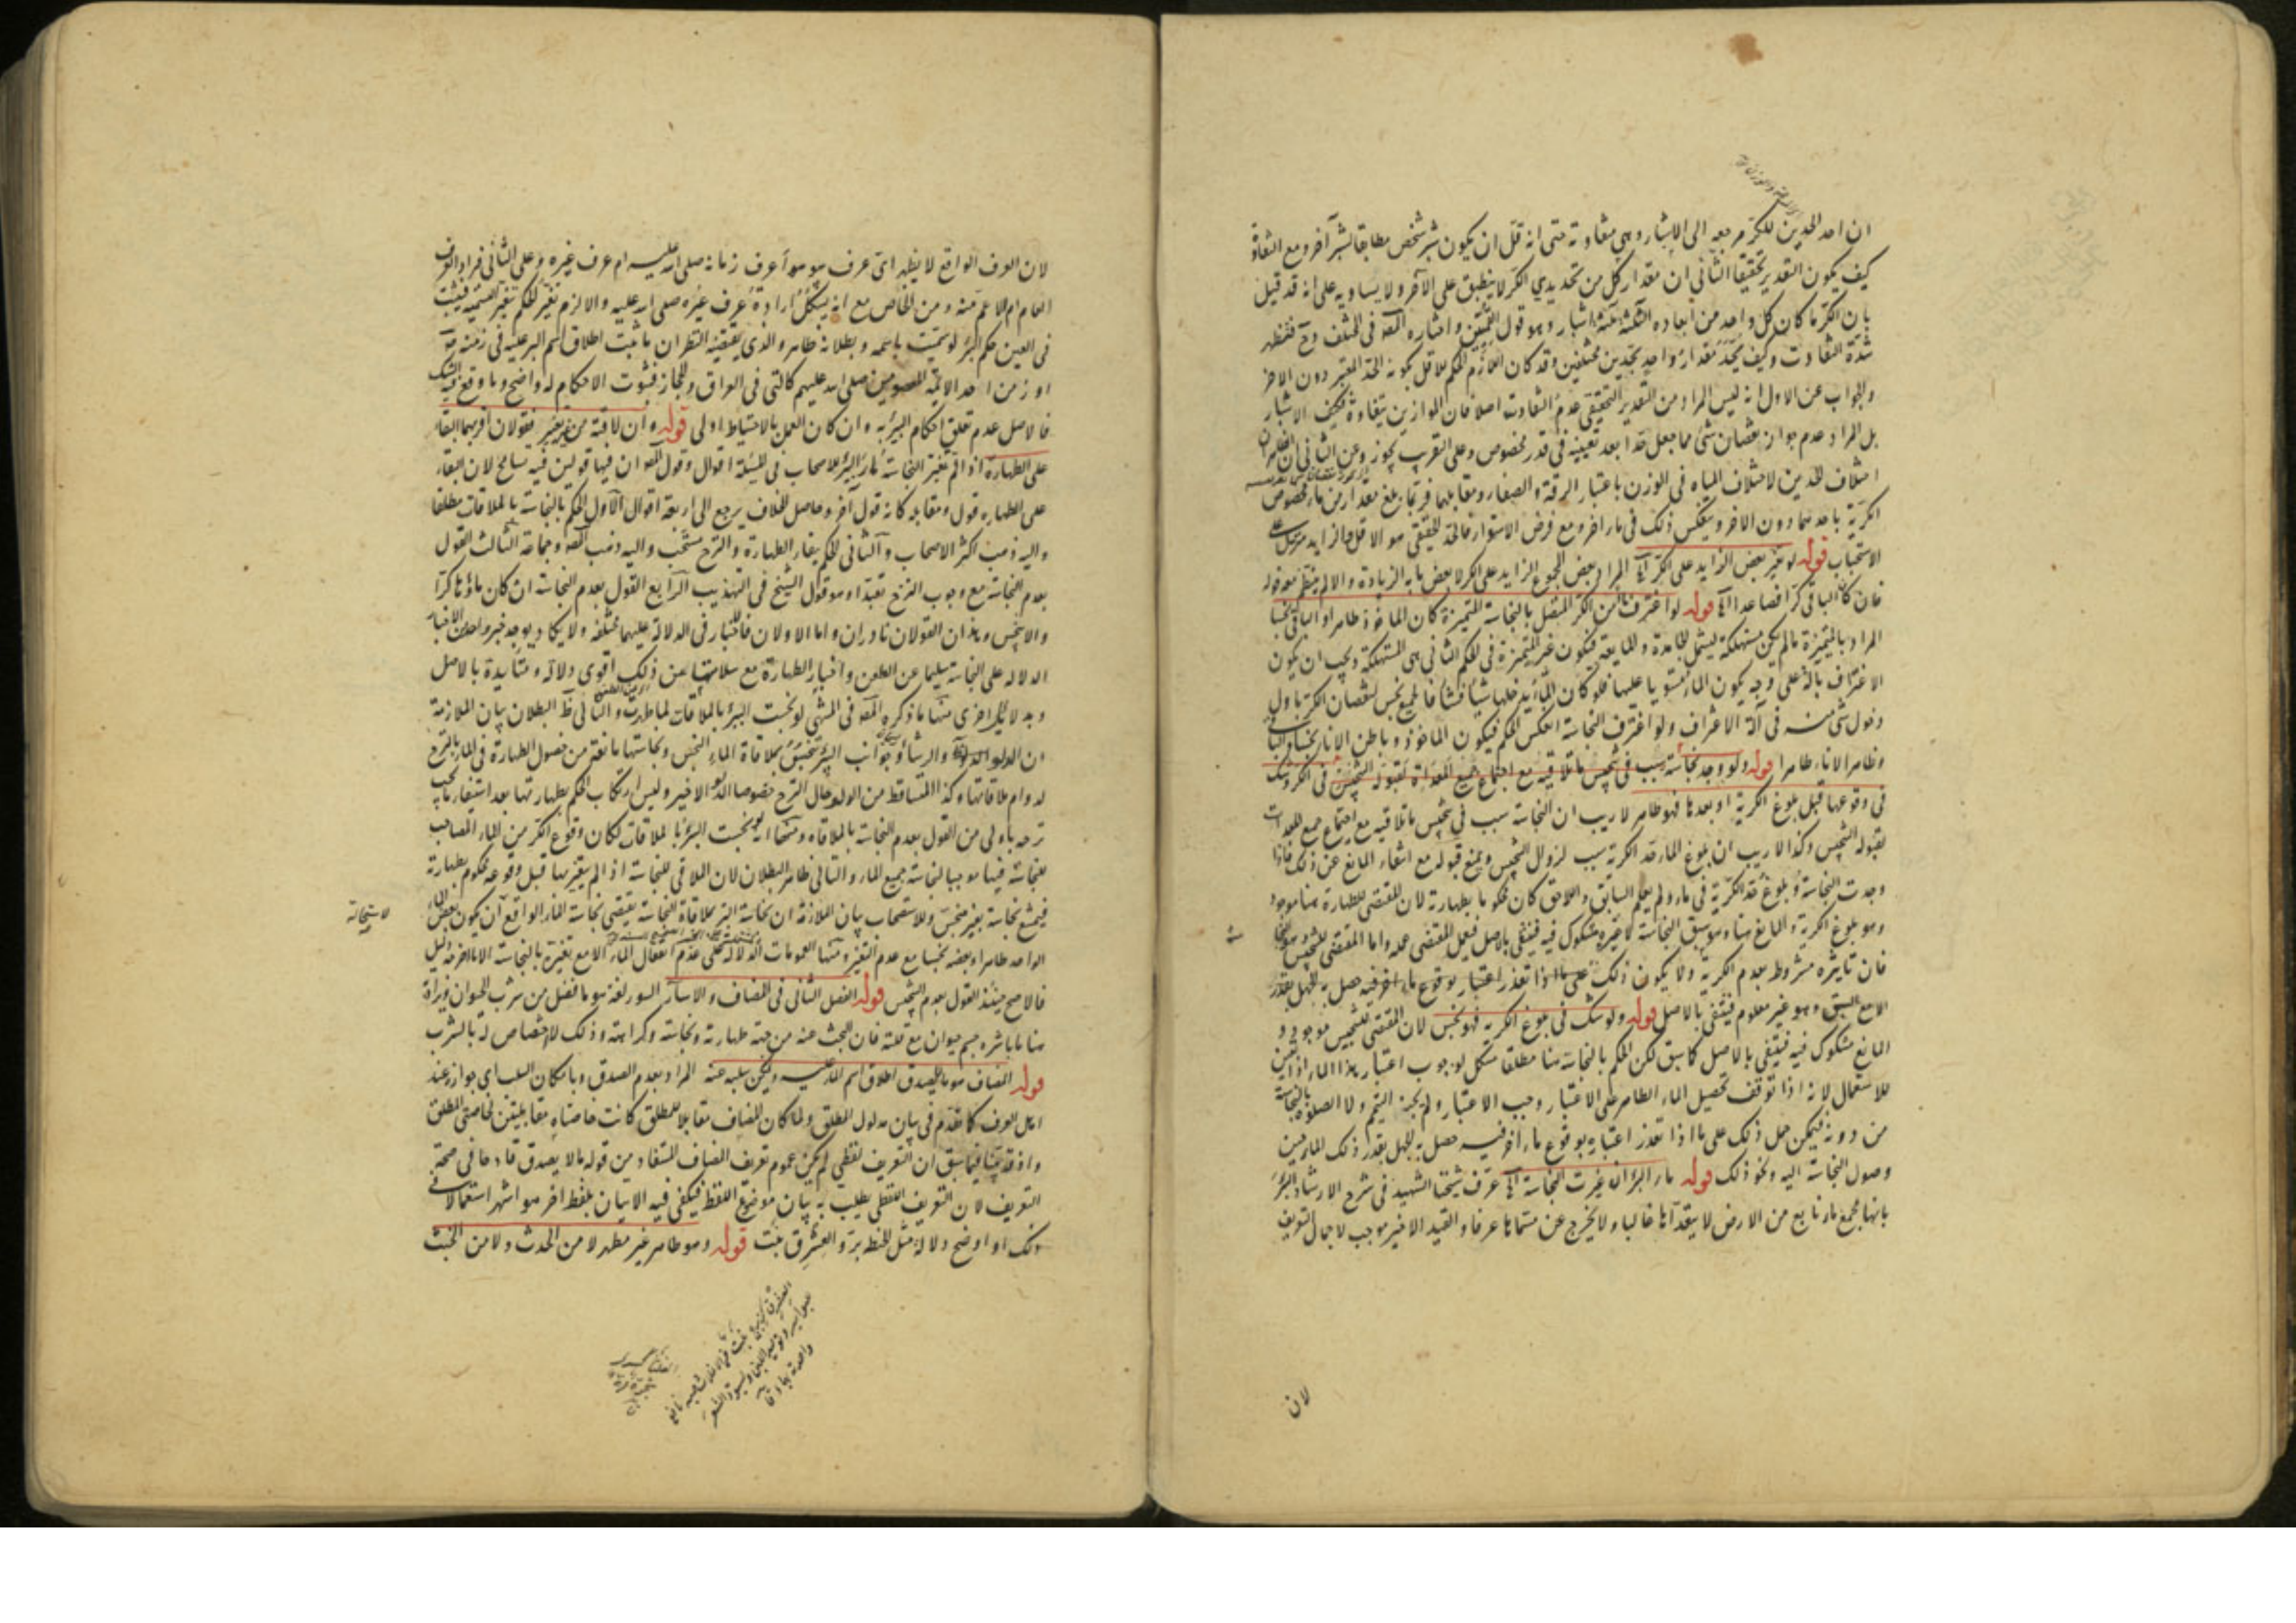 ان احد الحدين للكر مرجعه الى الاشبار وهي متفاوتة حتى انه قل ان يكون شبر شخص مطابقا لشبر آخر ومع التفاوت
كيف يكون التقدير تحقيقا الثاني ان مقدار كل من تحديدي الكر لا ينطبق على الآخر ولا يساويه على انه قد قيل
بان الكر ما كان كل واحد من ابعاده الثلثة ثلثة اشبار وهو قول القميين واختاره المصه في المختلف وح فتظهر
شدة التفاوت وكيف يحدد مقدار واحد بحدين مختلفين وقد كان اللازم الحكم للاقل بكونه الحد المعتبر دون الاخر
والجواب عن الاول انه ليس المراد من التقدير التحقيقي عدم التفاوت اصلا فان الموازين متفاوتة فكيف الاشبار
بل المراد عدم جواز نقصان شئ مما جعل حدا بعد تعيينه في قدر مخصوص وعلى التقريب يجوز وعن الثاني ان الظاهر ان
اختلاف الحدين لاختلاف المياه في الوزن باعتبار الرقة والصفا ومقابلهما فربما بلغ مقدار من ماء مخصوص
الكرية باحدهما دون الاخر وينعكس ذلك في ماء اخر ومع فرض الاستواء فالحد الحقيقي هو الاقل والزايد منزل على
الاستحباب قوله لو تغير بعض الزايد على الكر آه المراد بعض المجموع الزايد على الكر لا بعض ما به الزيادة والا لم ينتظم مع قوله
فان كان الباقي كرا فصاعدا آه قوله لو اغترف ماء من الكر المتصل بالنجاسة المتميزة كان الماخوذ طاهرا والباقي نجسا
المراد بالمتميزة ما لم يكن مستهلكة ليشمل الجامدة والمايعة فتكون غير المتميزة في الحكم الثاني هي المستهلكة ويجب ان يكون
الاغتراف بآلة على وجه يكون الماء مستويا عليها فلو كان الماء يدخلها شيئا فشيئا فالجميع نجس لنقصان الكر باول
دخول شئ منه في آلة الاغتراف ولو اغترف النجاسة انعكس الحكم فيكون الماخوذ وباطن الاناء نجسا والباقي
وظاهر الاناء طاهرا قوله ولو وجد نجاسة سبب في تنجيس ما تلاقيه مع اجتماع جميع المعدات لقبوله التنجيس في الكر وشك
في وقوعها قبل بلوغ الكرية او بعدها فهو طاهر لا ريب ان النجاسة سبب في تنجيس ما تلاقيه مع اجتماع جميع المعدات
لقبوله التنجيس وكذا لا ريب ان بلوغ الماء قدر الكرية سبب لزوال التنجيس ومنع قبوله مع انتفاء المانع عن ذلك فاذا
وجدت النجاسة وبلوغ قدر الكرية في ماء ولم يعلم السابق واللاحق كان محكوما بطهارته لان المقتضي للطهارة هنا موجود
وهو بلوغ الكرية والمانع هنا وهو سبق النجاسة لا غيره مشكوك فيه فينتفي بالاصل فيعمل المقتضي عمله واما المقتضي للتنجيس
فان تاثيره مشروط بعدم الكرية ولا يكون ذلك
الا مع السبق وهو غير معلوم فينتفي بالاصل قوله ولو شك في بلوغ الكرية فهو نجس لان المقتضي للتنجيس موجود و
المانع مشكوك فيه فينتفي بالاصل كما سبق لكن الحكم بالنجاسة هنا مطلقا مشكل لوجوب اعتبار هذا الماء اذا تعين
للاستعمال لانه اذا توقف تحصيل الماء الطاهر على الاعتبار وجب الاعتبار ولم يجز التيمم ولا الصلوة بالنجاسة
من دونه فيمكن حمل ذلك على ما اذا تعذر اعتباره بوقوع ماء آخر فيه حصل به الجهل بقدر ذلك الماء حين
وصول النجاسة اليه ونحو ذلك قوله ماء البئر ان غيرت النجاسة آه عرف شيخنا الشهيد في شرح الارشاد البئر
بانها مجمع ماء نابع من الارض لا يتعداها غالبا ولا يخرج عن مسماها عرفا والقيد الاخير موجب لاجمال التعريف
لان
لان العرف الواقع لا يظهر اي عرف هو هو أعرف زمانه صلى الله عليه ام عرف غيره وعلى الثاني فيراد العرف
العام ام الاعم منه ومن الخاص مع انه يشكل ارادة عرف غيره صلى الله عليه والا لزم تغير الحكم بتغير التسمية فيثبت
في العين حكم البئر لو سميت باسمه وبطلانه ظاهر والذي يقتضيه النظر ان ما ثبت اطلاق اسم البئر عليه في زمنه ص
او زمن احد الائمة المعصومين صلى الله عليهم كالتي في العراق والحجاز فثبوت الاحكام له واضح وما وقع فيه الشك
فالاصل عدم تعلق احكام البئر به وان كان العمل بالاحتياط اولى قوله وان لاقته من غير تغير فقولان اقربهما البقاء
على الطهارة اذا لم تغير النجاسة ماء البئر فللاصحاب في المسئلة اقوال وقول المصه ان فيها قولين فيه تسامح لان البقاء
على الطهاره قول ومقابله كانه قول آخر وحاصل الخلاف يرجع الى اربعة اقوال الاول الحكم بالنجاسة بالملاقات مطلقا
واليه ذهب اكثر الاصحاب والثاني الحكم ببقاء الطهارة والنزح مستحب واليه ذهب المصه وجماعة الثالث القول
بعدم النجاسة مع وجوب النزح تعبدا وهو قول الشيخ في التهذيب الرابع القول بعدم النجاسة ان كان ماؤها كرا
والا ينجس وهذان القولان نادران واما الاولان فالاخبار في الدلالة عليهما مختلفة ولا يكاد يوجد خبر واحد من الاخبار
الدالة على النجاسة سليما عن الطعن واخبار الطهارة مع سلامتها عن ذلك اقوى دلالة ومتأيدة بالاصل
وبدلايل اخرى منها ما ذكره المصه في المنتهى لو نجست البئر بالملاقات لما طهرت والتالي ظ البطلان بيان الملازمة
ان الدلو والرشا وجوانب البئر تنجس بملاقاة الماء النجس ونجاستها مانعة من حصول الطهارة في الماء بالنزح
لدوام ملاقاتها وكذا المتساقط من الدلو حال النزح خصوصا الدلو الاخير وليس ارتكاب الحكم بطهارتها بعد استيفاء ما يجب
نزحه باولى من القول بعدم النجاسة بالملاقاه ومنها انه لو نجست البئر بالملاقات لكان وقوع الكر من الماء المصاحب
لنجاسة فيها موجبا لنجاسة جميع الماء والتالي ظاهر البطلان لان الملاقي للنجاسة اذا لم يتغير بها قبل وقوعه محكوم بطهارته
فيمتنع نجاسته بغير منجس وللاستصحاب بيان الملازمة ان نجاسة البئر بملاقاة النجاسة يقتضي نجاسة الماء الواقع
لاستحالة
ان يكون بعض الماء
الواحد طاهرا وبعضه نجسا مع عدم التغير ومنها العمومات الدالة على عدم انفعال الماء الا مع تغيره بالنجاسة الا ما اخرجه دليل
فالاصح حينئذ القول بعدم التنجيس قوله الفصل الثاني في المضاف والاسآر السور لغة هو ما فضل من شرب الحيوان ويراد
هنا ما باشره جسم حيوان مع قلته فان البحث عنه من جهة طهارته ونجاسته وكراهته وذلك لا اختصاص له بالشرب
قوله المضاف هو ما لا يصدق اطلاق اسم الماء عليه ويمكن سلبه عنه المراد بعدم الصدق وبامكان السلب اي جوازه عند
اهل العرف كما تقدم في بيان مدلول المطلق ولما كان المضاف مقابلا للمطلق كانت خاصتاه مقابلتين لخاصتي المطلق
واذ قد بينا فيما سبق ان التعريف لفظي لم يكن عموم تعريف المضاف المستفاد من قوله ما لا يصدق قادحا في صحة
التعريف لان التعريف اللفظي يطلب به بيان موضوع اللفظ فيكفي فيه الاتيان بلفظ اخر هو اشهر استعمالا في
ذلك او اوضح دلالة مثل الحنطة بر والعشرق نبت قوله وهو طاهر غير مطهر لا من الحدث ولا من الخبث